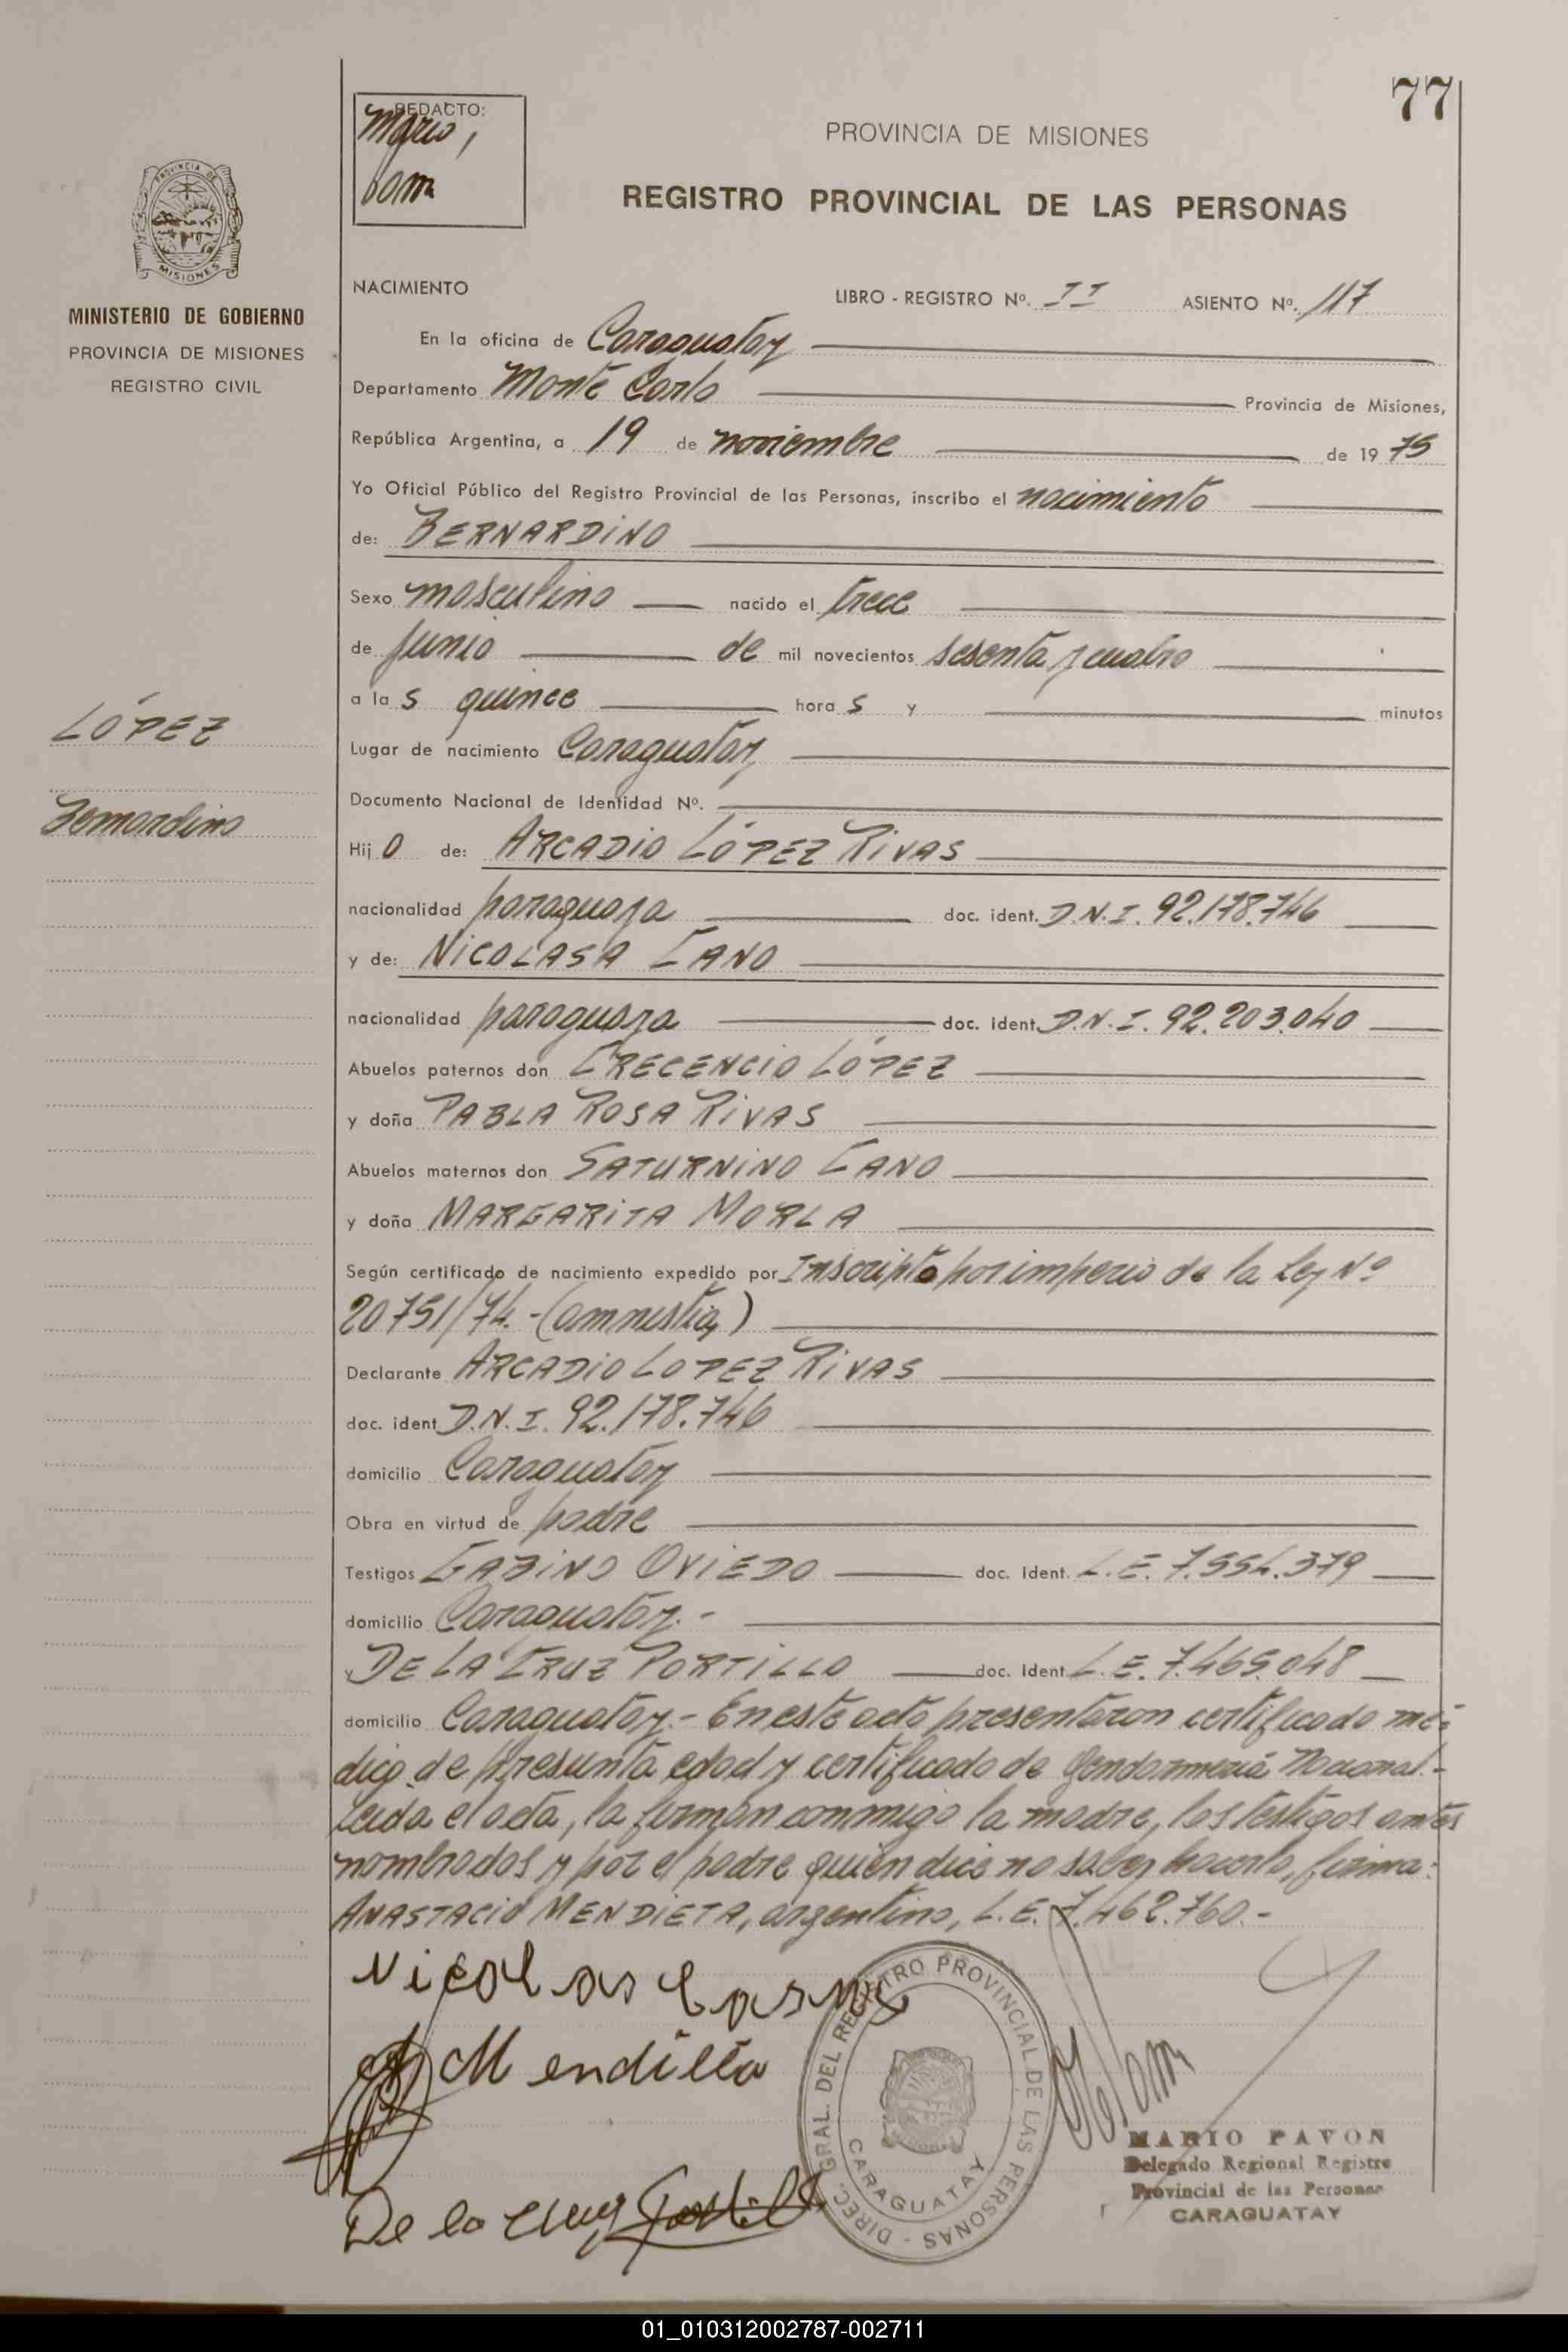 77
REDACTO:
PROVINCIA DE MISIONES
REGISTRO PROVINCIAL DE LAS PERSONAS
PROVINCIA DE
MISIONES
MINISTERIO DE GOBIERNO
PROVINCIA DE MISIONES
REGISTRO CIVIL
NACIMIENTO LIBRO - REGISTRO Nº. II ASIENTO Nº. 117
En la oficina de Caraguatay
Departamento Monte Carlo Provincia de Misiones,
República Argentina, a 19 de noviembre de 19 75
Yo Oficial Público del Registro Provincial de las Personas, inscribo el nacimiento
de: BERNARDINO
Sexo masculino nacido el trece
de junio de mil novecientos sesenta y cuatro
a la s quince hora s y minutos
LÓPEZ
Bernardino
Lugar de nacimiento Caraguatay
Documento Nacional de Identidad Nº.
Hij o de: ARCADIO LÓPEZ RIVAS
nacionalidad paraguaya doc. ident. D.N.I. 92.178.746
y de: NICOLASA CANO
nacionalidad paraguaya doc. ident. D.N.I. 92.203.040
Abuelos paternos don CRECENCIO LÓPEZ
y doña PABLA ROSA RIVAS
Abuelos maternos don SATURNINO CANO
y doña MARGARITA MORLA
Según certificado de nacimiento expedido por Inscripto por imperio de la Ley Nº
20751/74.-(amnistia)
Declarante ARCADIO LOPEZ RIVAS
doc. ident. D.N.I. 92.178.746
domicilio Caraguatay
Obra en virtud de padre
Testigos GABINO OVIEDO doc. Ident. L.E. 7.554.379
domicilio Caraguatay.-
y DE LA CRUZ PORTILLO doc. Ident. L.E. 7.465.048
domicilio Caraguatay.- En este acto presentaron certificado mé-
dico de presunta edad y certificado de Gendarmería Nacional.-
Leida el acta, la firman conmigo la madre, los testigos antes
nombrados y por el padre quien dice no saber hacerlo, firma:
ANASTACIO MENDIETA, argentino, L.E. 7.462.760.-
Nicolas
Mendieta
De la Cruz Portillo
DIREC. GRAL. DEL REGISTRO PROVINCIAL DE LAS PERSONAS -
CARAGUATAY
MARIO PAVON
Delegado Regional Registro
Provincial de las Personas
CARAGUATAY
01_010312002787-002711